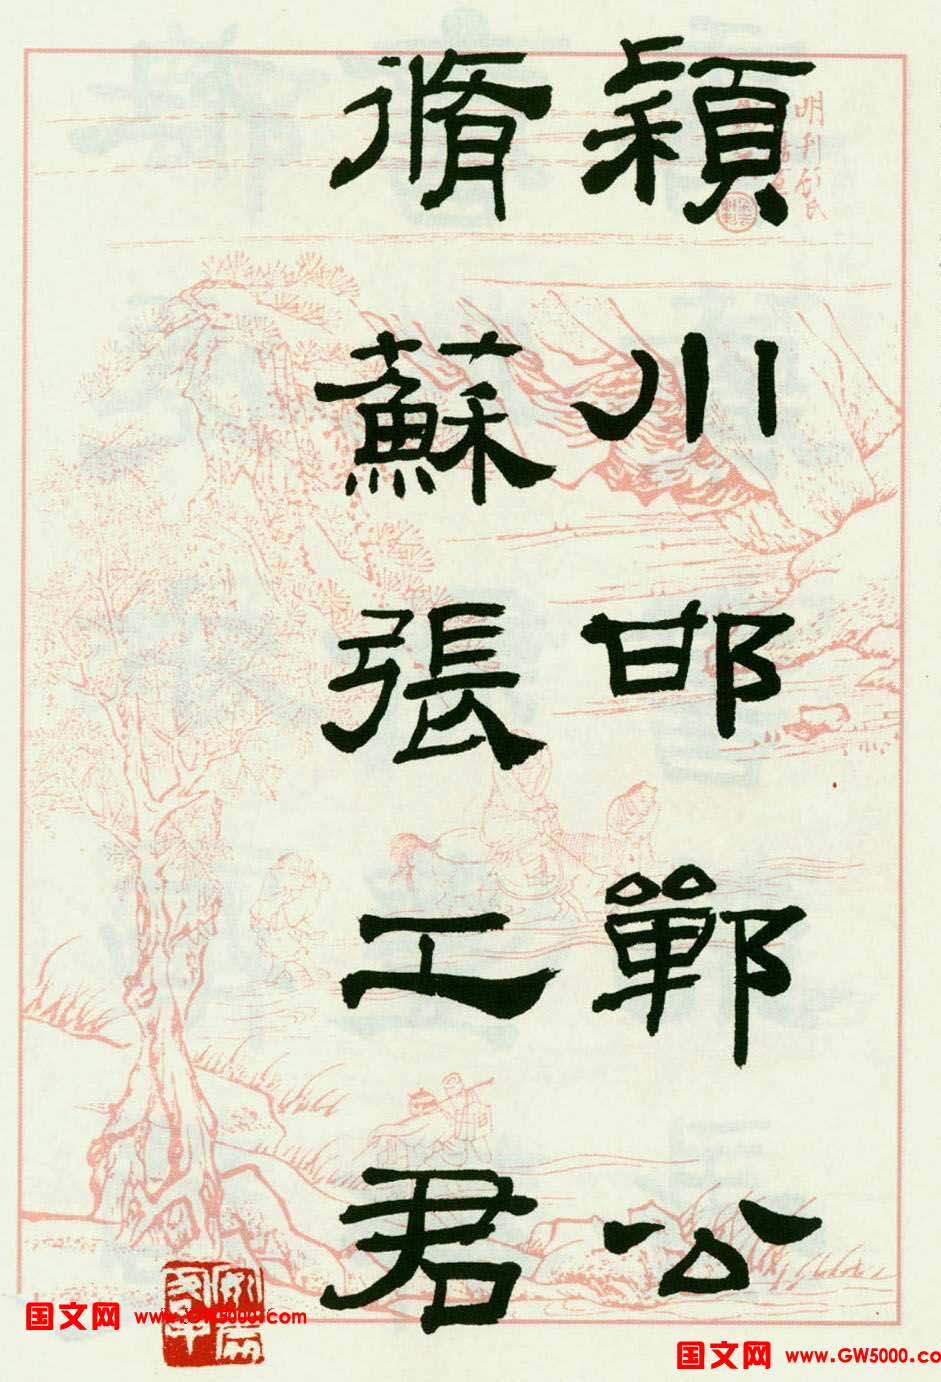 穎川邯鄲公
脩蘇張工君
国文网 www.GW5000.com
国文网 www.GW5000.co